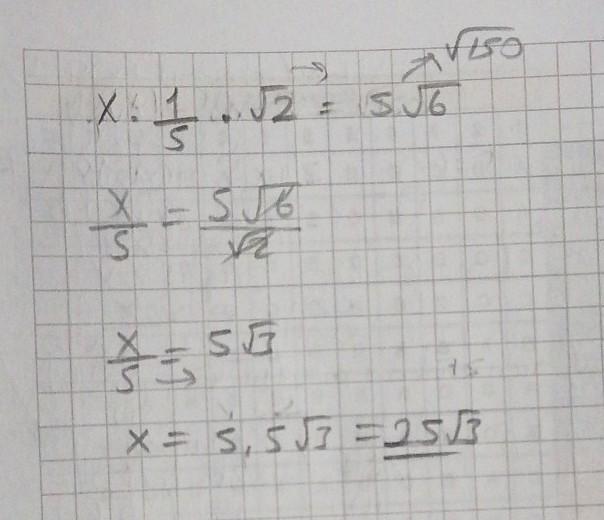 √150
x . 1/5 . √2 = 5√6
x/5 = 5√6/√2
x/5 = 5√3
x = 5.5√3 = 25√3